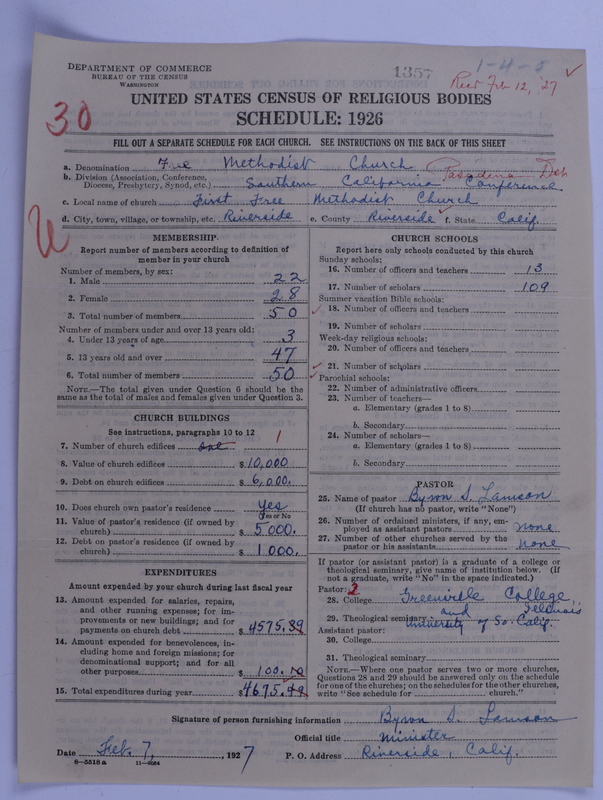 DEPARTMENT OF COMMERCE
BUREAU OF THE CENSUS
WASHINGTON
1357
1-4-8
Recd Feb 12, '27
30
UNITED STATES CENSUS OF RELIGIOUS BODIES
SCHEDULE: 1926
FILL OUT A SEPARATE SCHEDULE FOR EACH CHURCH. SEE INSTRUCTIONS ON THE BACK OF THIS SHEET
a. Denomination Free Methodist Church
b. Division (Association, Conference, Diocese, Presbytery, Synod, etc.) Southern California Conference Pasadena Dst
c. Local name of church First Free Methodist Church
d. City, town, village, or township, etc. Riverside e. County Riverside f. State Calif.
U
MEMBERSHIP
Report number of members according to definition of
member in your church
Number of members, by sex:
1. Male 22
2. Female 28
3. Total number of members 50
Number of members under and over 13 years old:
4. Under 13 years of age 3
5. 13 years old and over 47
6. Total number of members 50
NOTE.—The total given under Question 6 should be
the same as the total of males and females given under Question 3.
CHURCH BUILDINGS
See instructions, paragraphs 10 to 12
7. Number of church edifices one 1
8. Value of church edifices $10,000
9. Debt on church edifices $6,000.
10. Does church own pastor's residence yes
Yes or No
11. Value of pastor's residence (if owned by
church) $5000.
12. Debt on pastor's residence (if owned by
church) $1000.
EXPENDITURES
Amount expended by your church during last fiscal year
13. Amount expended for salaries, repairs,
and other running expenses; for im-
provements or new buildings; and for
payments on church debt $4575.89
14. Amount expended for benevolences, in-
cluding home and foreign missions; for
denominational support; and for all
other purposes $100.
15. Total expenditures during year $4675.
CHURCH SCHOOLS
Report here only schools conducted by this church
Sunday schools:
16. Number of officers and teachers 13
17. Number of scholars 109
Summer vacation Bible schools:
18. Number of officers and teachers
19. Number of scholars
Week-day religious schools:
20. Number of officers and teachers
21. Number of scholars
Parochial schools:
22. Number of administrative officers
23. Number of teachers—
a. Elementary (grades 1 to 8)
b. Secondary
24. Number of scholars—
a. Elementary (grades 1 to 8)
b. Secondary
PASTOR
25. Name of pastor Byron S. Lamson
(If church has no pastor, write "None")
26. Number of ordained ministers, if any, em-
ployed as assistant pastors none
27. Number of other churches served by the
pastor or his assistants none
If pastor (or assistant pastor) is a graduate of a college or
theological seminary, give name of institution below. (If
not a graduate, write "No" in the space indicated.)
Pastor: 2
28. College Greenville College, Illinois
and
29. Theological seminary University of So. Calif.
Assistant pastor:
30. College
31. Theological seminary
NOTE.—Where one pastor serves two or more churches,
Questions 28 and 29 should be answered only on the schedule
for one of the churches; on the schedules for the other churches,
write "See schedule for church."
Signature of person furnishing information Byron S. Lamson
Official title Minister
Date Feb. 7, 1927 P. O. Address Riverside, Calif.
8-5518a 11-9564